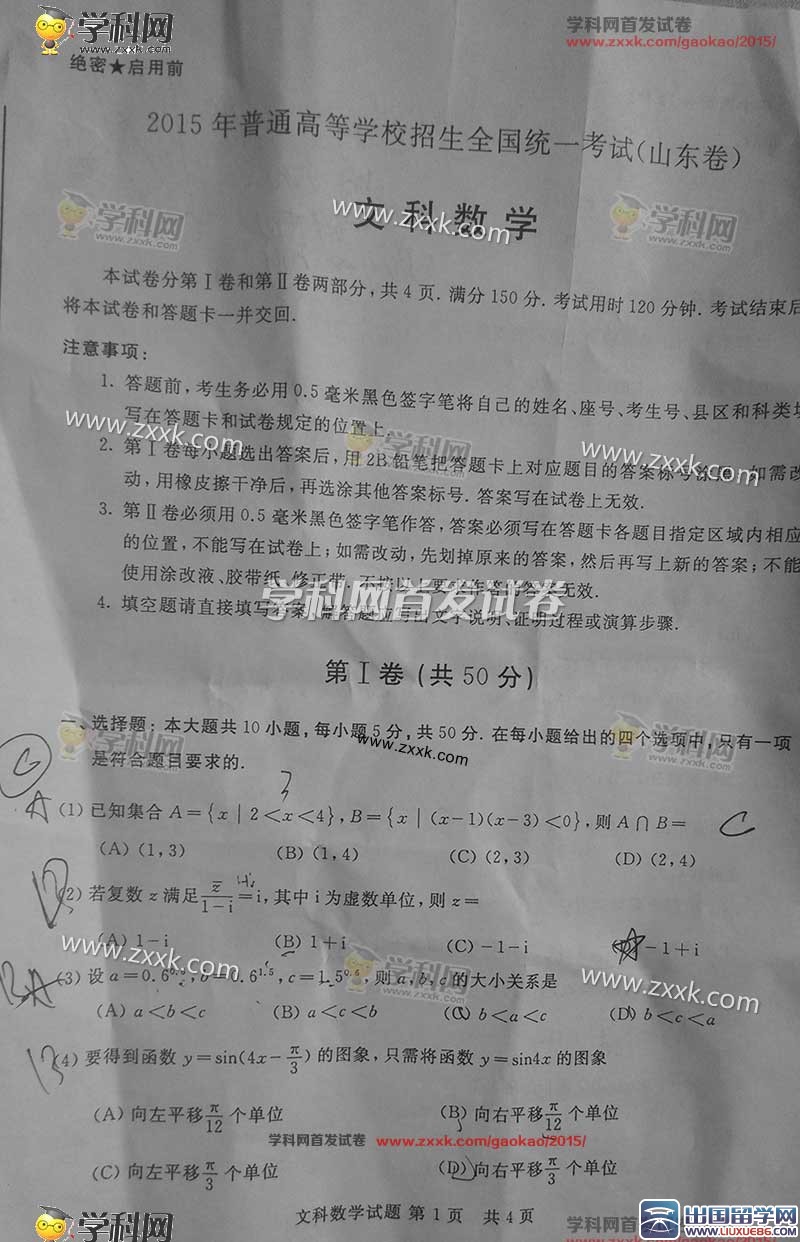 学科网
www.zxxk.com
学科网首发试卷
www.zxxk.com/gaokao/2015/
绝密★启用前
2015年普通高等学校招生全国统一考试(山东卷)
学科网
www.zxxk.com
文科数学
www.zxxk.com
学科网
www.zxxk.com
本试卷分第Ⅰ卷和第Ⅱ卷两部分,共4页.满分150分.考试用时120分钟.考试结束后
将本试卷和答题卡一并交回.
注意事项:
1. 答题前,考生务必用0.5毫米黑色签字笔将自己的姓名、座号、考生号、县区和科类填
写在答题卡和试卷规定的位置上.
www.zxxk.com
学科网
www.zxxk.com
www.zxxk.com
2. 第Ⅰ卷每小题选出答案后,用2B铅笔把答题卡上对应题目的答案标号涂黑,如需改
动,用橡皮擦干净后,再选涂其他答案标号.答案写在试卷上无效.
3. 第Ⅱ卷必须用0.5毫米黑色签字笔作答,答案必须写在答题卡各题目指定区域内相应
的位置,不能写在试卷上;如需改动,先划掉原来的答案,然后再写上新的答案;不能
使用涂改液、胶带纸、修正带.不按以上要求作答的答案无效.
学科网首发试卷
4. 填空题请直接填写答案,解答题应写出文字说明、证明过程或演算步骤.
第Ⅰ卷(共50分)
一、选择题:本大题共10小题,每小题5分,共50分.在每小题给出的四个选项中,只有一项
学科网
www.zxxk.com
www.zxxk.com
学科网
www.zxxk.com
是符合题目要求的.
3
A (1) 已知集合 A={x | 2<x<4},B={x | (x-1)(x-3)<0},则 A∩B= C
(A) (1,3) (B) (1,4) (C) (2,3) (D) (2,4)
(2) 若复数 z 满足 z̄/(1-i)=i,其中 i 为虚数单位,则 z=
(A) 1-i (B) 1+i (C) -1-i -1+i
www.zxxk.com
学科网
www.zxxk.com
www.zxxk.com
(3) 设 a=0.6^0.6,b=0.6^1.5,c=1.5^0.6,则 a,b,c 的大小关系是
(A) a<b<c (B) a<c<b (C) b<a<c (D) b<c<a
(4) 要得到函数 y=sin(4x-π/3) 的图象,只需将函数 y=sin4x 的图象
(A) 向左平移 π/12 个单位 (B) 向右平移 π/12 个单位
学科网首发试卷 www.zxxk.com/gaokao/2015/
(C) 向左平移 π/3 个单位 (D) 向右平移 π/3 个单位
文科数学试题 第1页 共4页
学科网
学科网
出国留学网
www.liuxue86.com